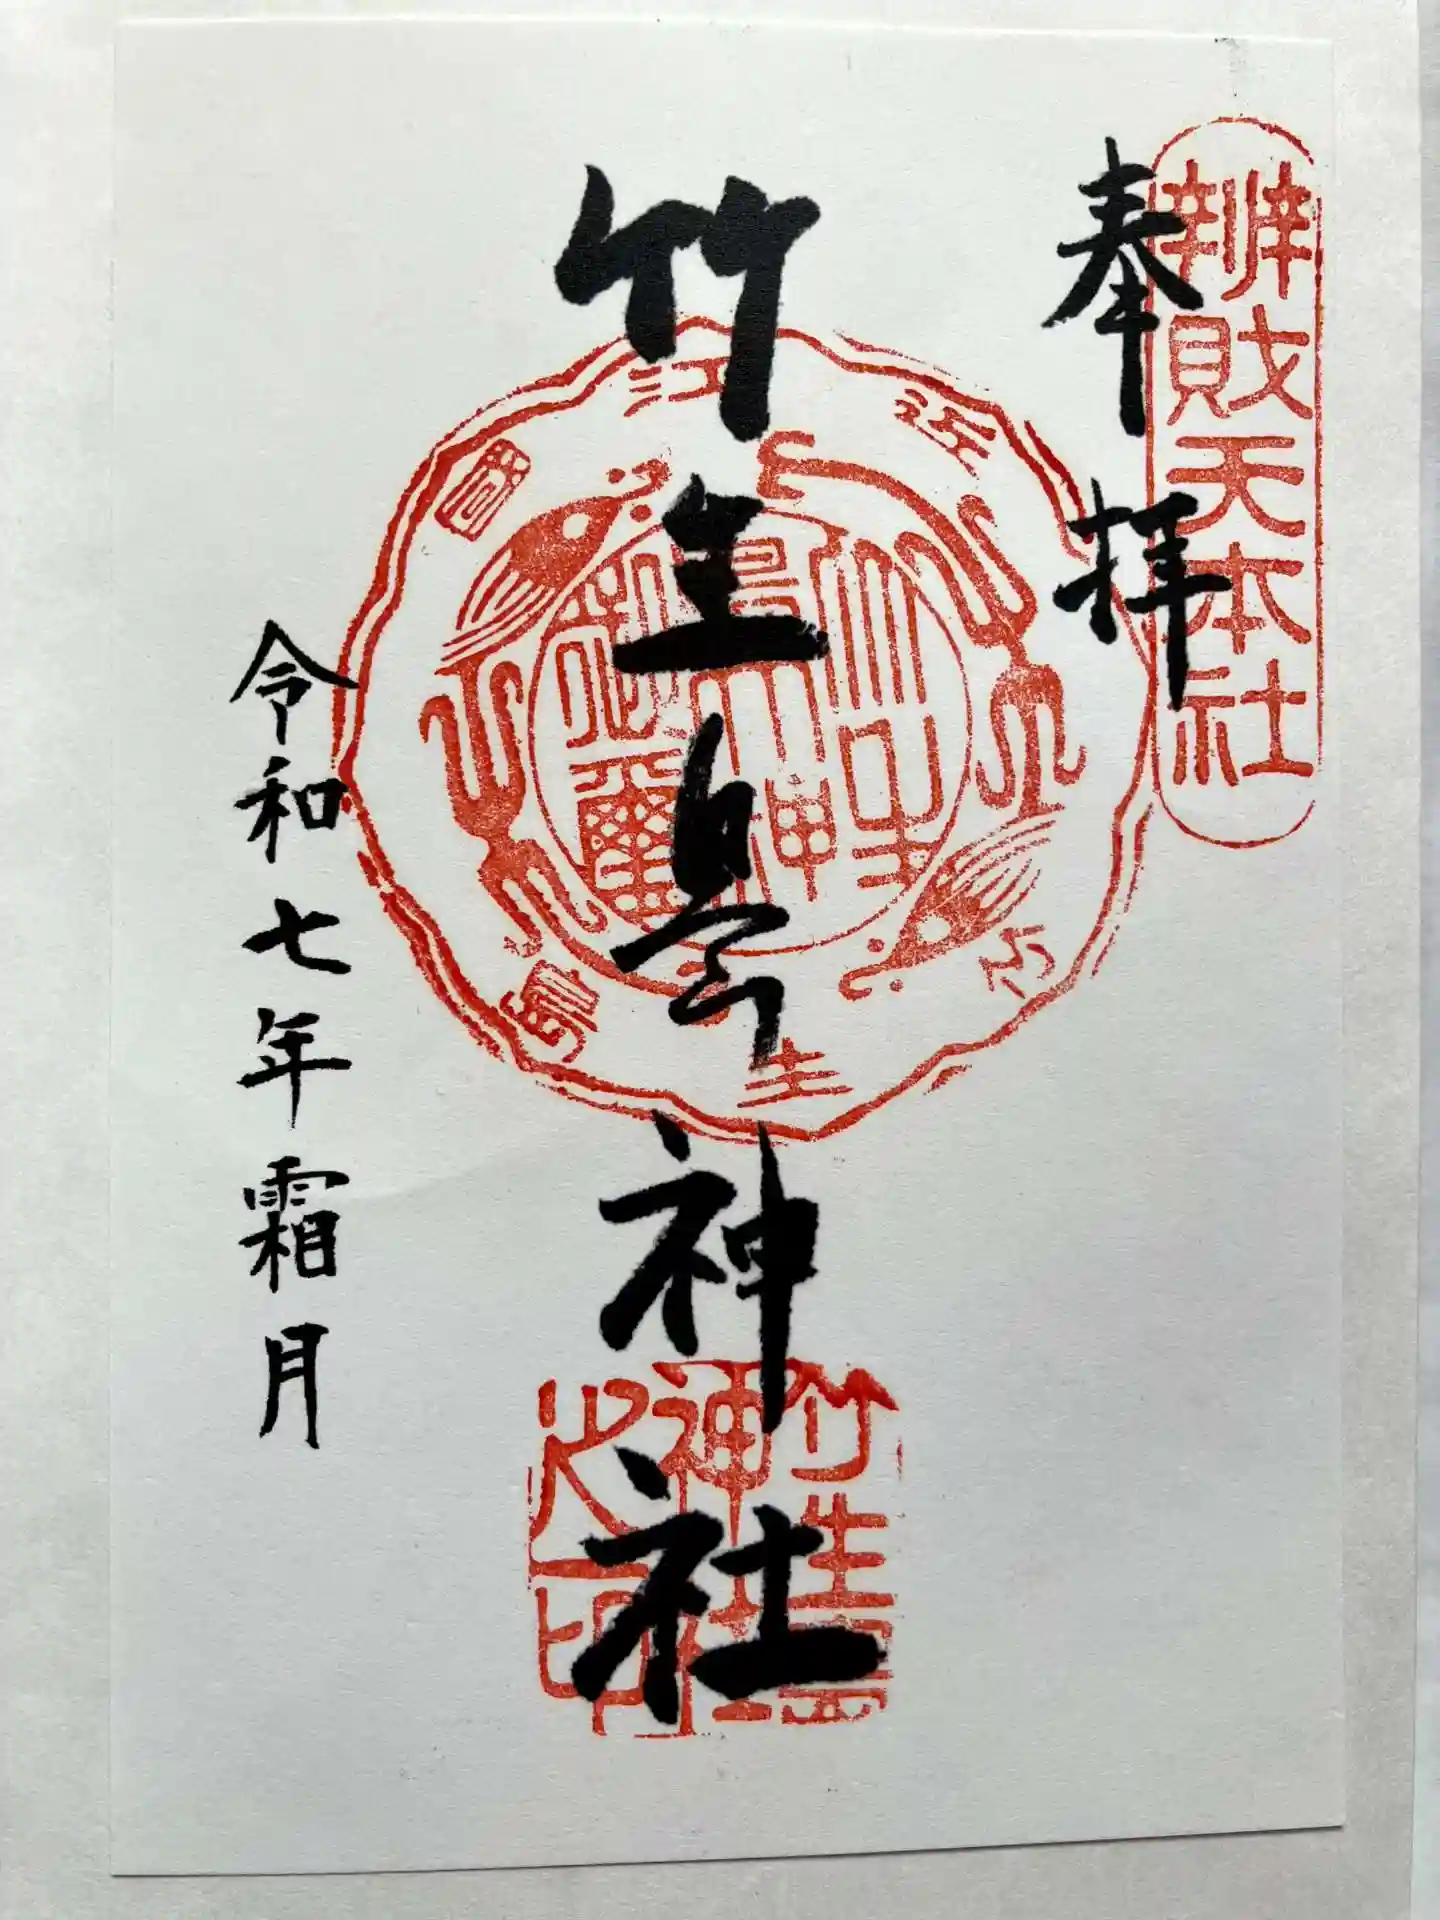 辨財天本社
奉拝
竹生島神社
近江國
竹生嶋
竹生島神社之印
令和七年霜月